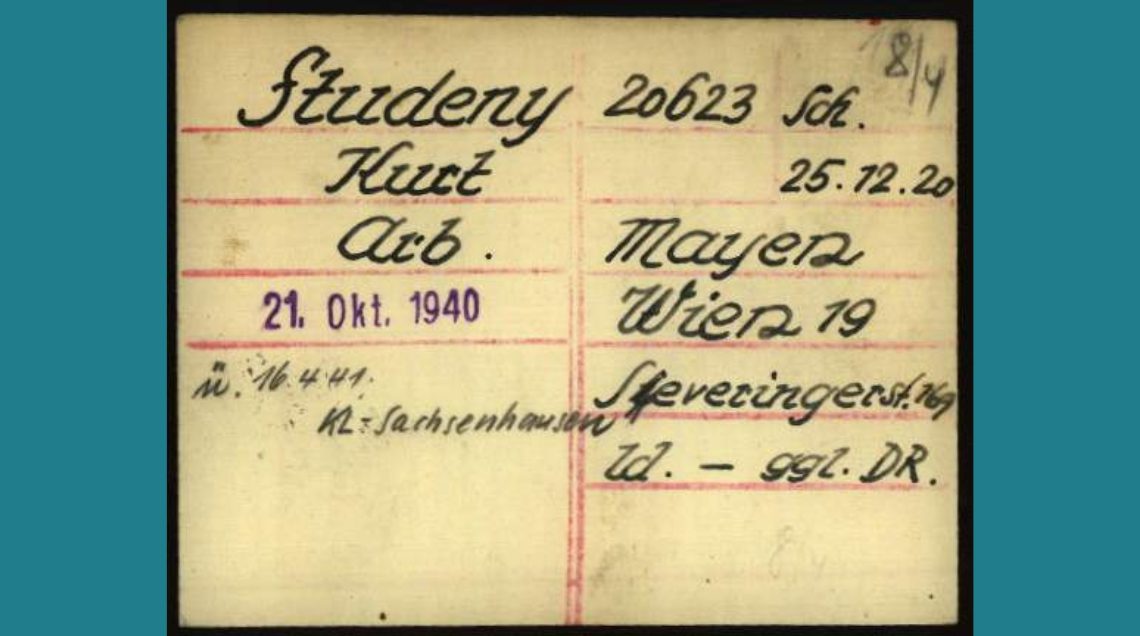 8/4
Studeny 20623 Sch.
Kurt 25.12.20
Arb. Mayen
Wien 19
21. Okt. 1940
ü. 16.4.41.
KL-Sachsenhausen
Sieveringerst. 169
ld. - ggl. DR.